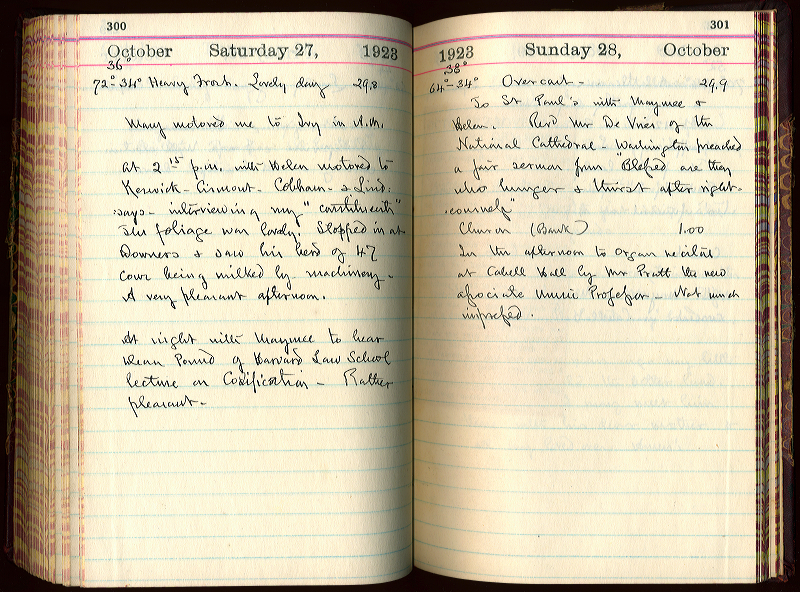 300
October Saturday 27, 1923
36°
72°-34° Heavy Frost. Lovely day 29.8
Mary motored me to Ivy in A.M.
At 2 p.m. with Helen motored to
Keswick - Cismont - Cobham - & Lind.
says - interviewing my "constituents"
The foliage was lovely. Stopped in at
Downers & saw his herd of 47
cows being milked by machinery -
A very pleasant afternoon.
At night with Maymee to hear
Dean Pound of Harvard Law School
lecture on Codification - Rather
pleasant -
301
1923 Sunday 28, October
38°
64°-34° Overcast - 29.9
To St Paul's with Maymee &
Helen. Revd Mr De Vries of the
National Cathedral - Washington preached
a fair sermon from "Blessed are they
who hunger & thirst after right-
eousness"
Church (Bank) 1.00
In the afternoon to Organ recital
at Cabell Hall by Mr Pratt the new
associate Music Professor - Not much
impressed.